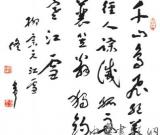 千山鸟飞绝万
径人踪灭孤舟
蓑笠翁独钓
寒江雪
柳宗元江雪